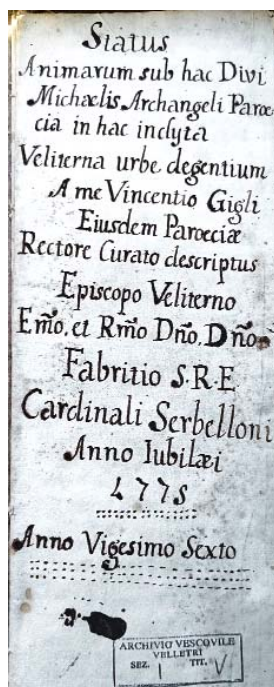 Status
Animarum sub hac Divi
Michaelis Archangeli Paroe-
cia in hac inclyta
Veliterna urbe degentium
A me Vincentio Gigli
Eiusdem Paroeciæ
Rectore Curato descriptus
Episcopo Veliterno
Emo. et Rmo Dno. Dno.
Fabritio S.R.E
Cardinali Serbelloni
Anno Iubilæi
1775
Anno Vigesimo Sexto
ARCHIVIO VESCOVILE
VELLETRI
SEZ. I TIT. V